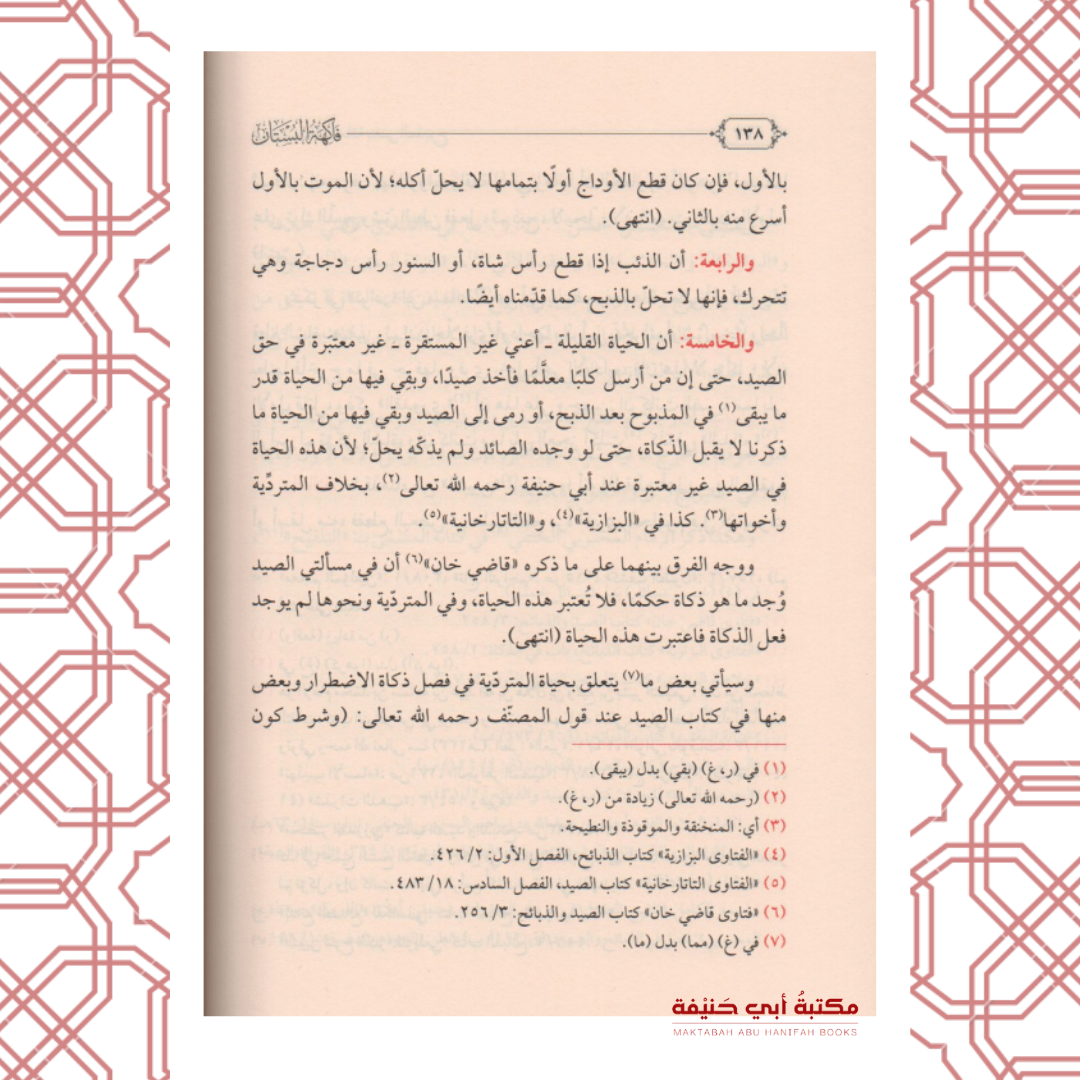 ١٣٨ فاكهة البستان
بالأول، فإن كان قطع الأوداج أولًا بتمامها لا يحلّ أكله؛ لأن الموت بالأول
أسرع منه بالثاني. (انتهى).
والرابعة: أن الذئب إذا قطع رأس شاة، أو السنور رأس دجاجة وهي
تتحرك، فإنها لا تحلّ بالذبح، كما قدّمناه أيضًا.
والخامسة: أن الحياة القليلة ـ أعني غير المستقرة ـ غير معتبَرة في حق
الصّيد، حتى إن من أرسل كلبًا معلَّمًا فأخذ صيدًا، وبقِي فيها من الحياة قدر
ما يبقى(١) في المذبوح بعد الذبح، أو رمى إلى الصّيد وبقي فيها من الحياة ما
ذكرنا لا يقبل الذّكاة، حتى لو وجده الصائد ولم يذكّه يحلّ؛ لأن هذه الحياة
في الصيد غير معتبرة عند أبي حنيفة رحمه الله تعالى(٢)، بخلاف المتردِّية
وأخواتها(٣). كذا في «البزازية»(٤)، و«التاتارخانية»(٥).
ووجه الفرق بينهما على ما ذكره «قاضي خان»(٦) أن في مسألتي الصيد
وُجد ما هو ذكاة حكمًا، فلا تُعتبر هذه الحياة، وفي المتردّية ونحوها لم يوجد
فعل الذكاة فاعتبرت هذه الحياة (انتهى).
وسيأتي بعض ما(٧) يتعلق بحياة المتردّية في فصل ذكاة الاضطرار وبعض
منها في كتاب الصيد عند قول المصنّف رحمه الله تعالى: (وشرط كون
(١) في (ر، غ) (بقي) بدل (يبقى).
(٢) (رحمه الله تعالى) زيادة من (ر، غ).
(٣) أي: المنخنقة والموقوذة والنطيحة.
(٤) «الفتاوى البزازية» كتاب الذبائح، الفصل الأول: ٢/ ٤٢٦.
(٥) «الفتاوى التاتارخانية» كتاب الصيد، الفصل السادس: ١٨/ ٤٨٣.
(٦) «فتاوى قاضي خان» كتاب الصيد والذبائح: ٣/ ٢٥٦.
(٧) في (غ) (مما) بدل (ما).
مكتبةُ أبي حَنيْفة
MAKTABAH ABU HANIFAH BOOKS